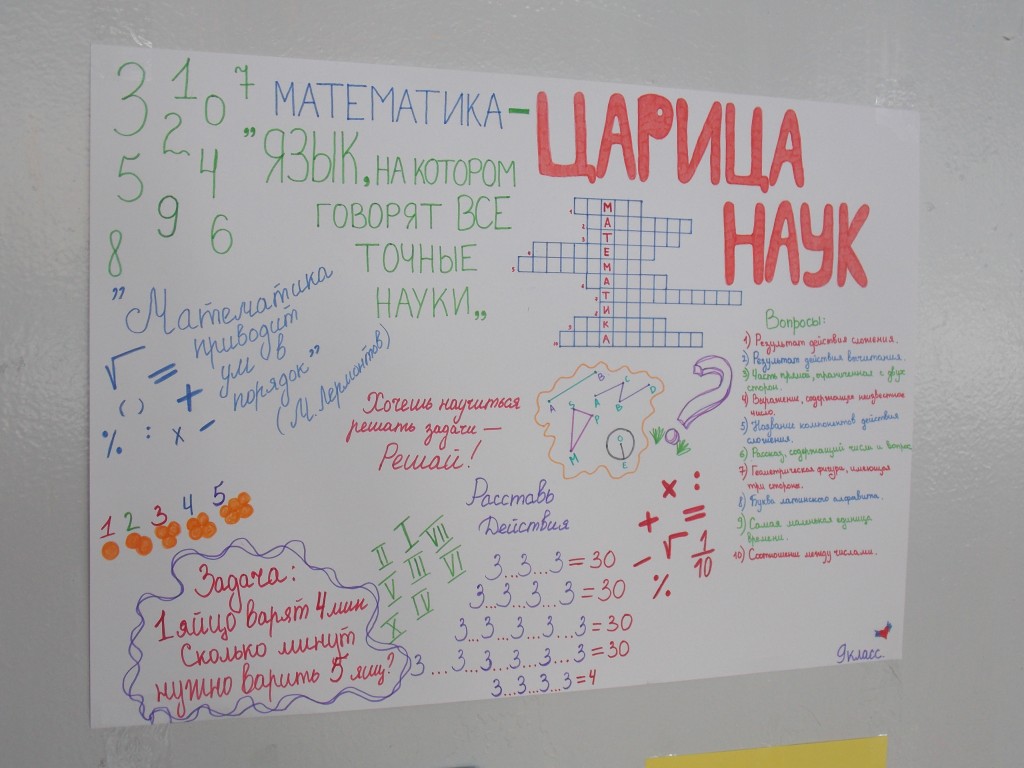 3 1 0 7
2
5 4
9
8 6
МАТЕМАТИКА – ЦАРИЦА
НАУК
„ЯЗЫК, НА КОТОРОМ
ГОВОРЯТ ВСЕ
ТОЧНЫЕ
НАУКИ„
„Математика
приводит
ум в
порядок"
(М. Лермонтов)
√ =
( ) +
% : × -
1 2 3 4 5
Задача:
1 яйцо варят 4 мин
Сколько минут
нужно варить 5 яиц?
Хочешь научиться
решать задачи –
Решай!
1 М
2 А
3 Т
Е
5 М
А
Т
И
К
10 А
A B C D
S P A B
M O E
?
Расставь
Действия
II I VII
V III VI
X IV
3...3...3 = 30
3...3...3...3 = 30
3...3...3...3...3 = 30
3...3...3...3...3...3 = 30
3...3...3...3 = 4
× :
+ =
- √ 1/10
%
Вопросы:
1) Результат действия сложения.
2) Результат действия вычитания.
3) Часть прямой, ограниченная с двух
сторон.
4) Выражение, содержащее неизвестное
число.
5) Название компонентов действия
сложения.
6) Рассказ, содержащий числа и вопрос
7) Геометрическая фигура, имеющая
три стороны.
8) Буква латинского алфавита.
9) Самая маленькая единица
времени.
10) Соотношение между числами.
9 класс.